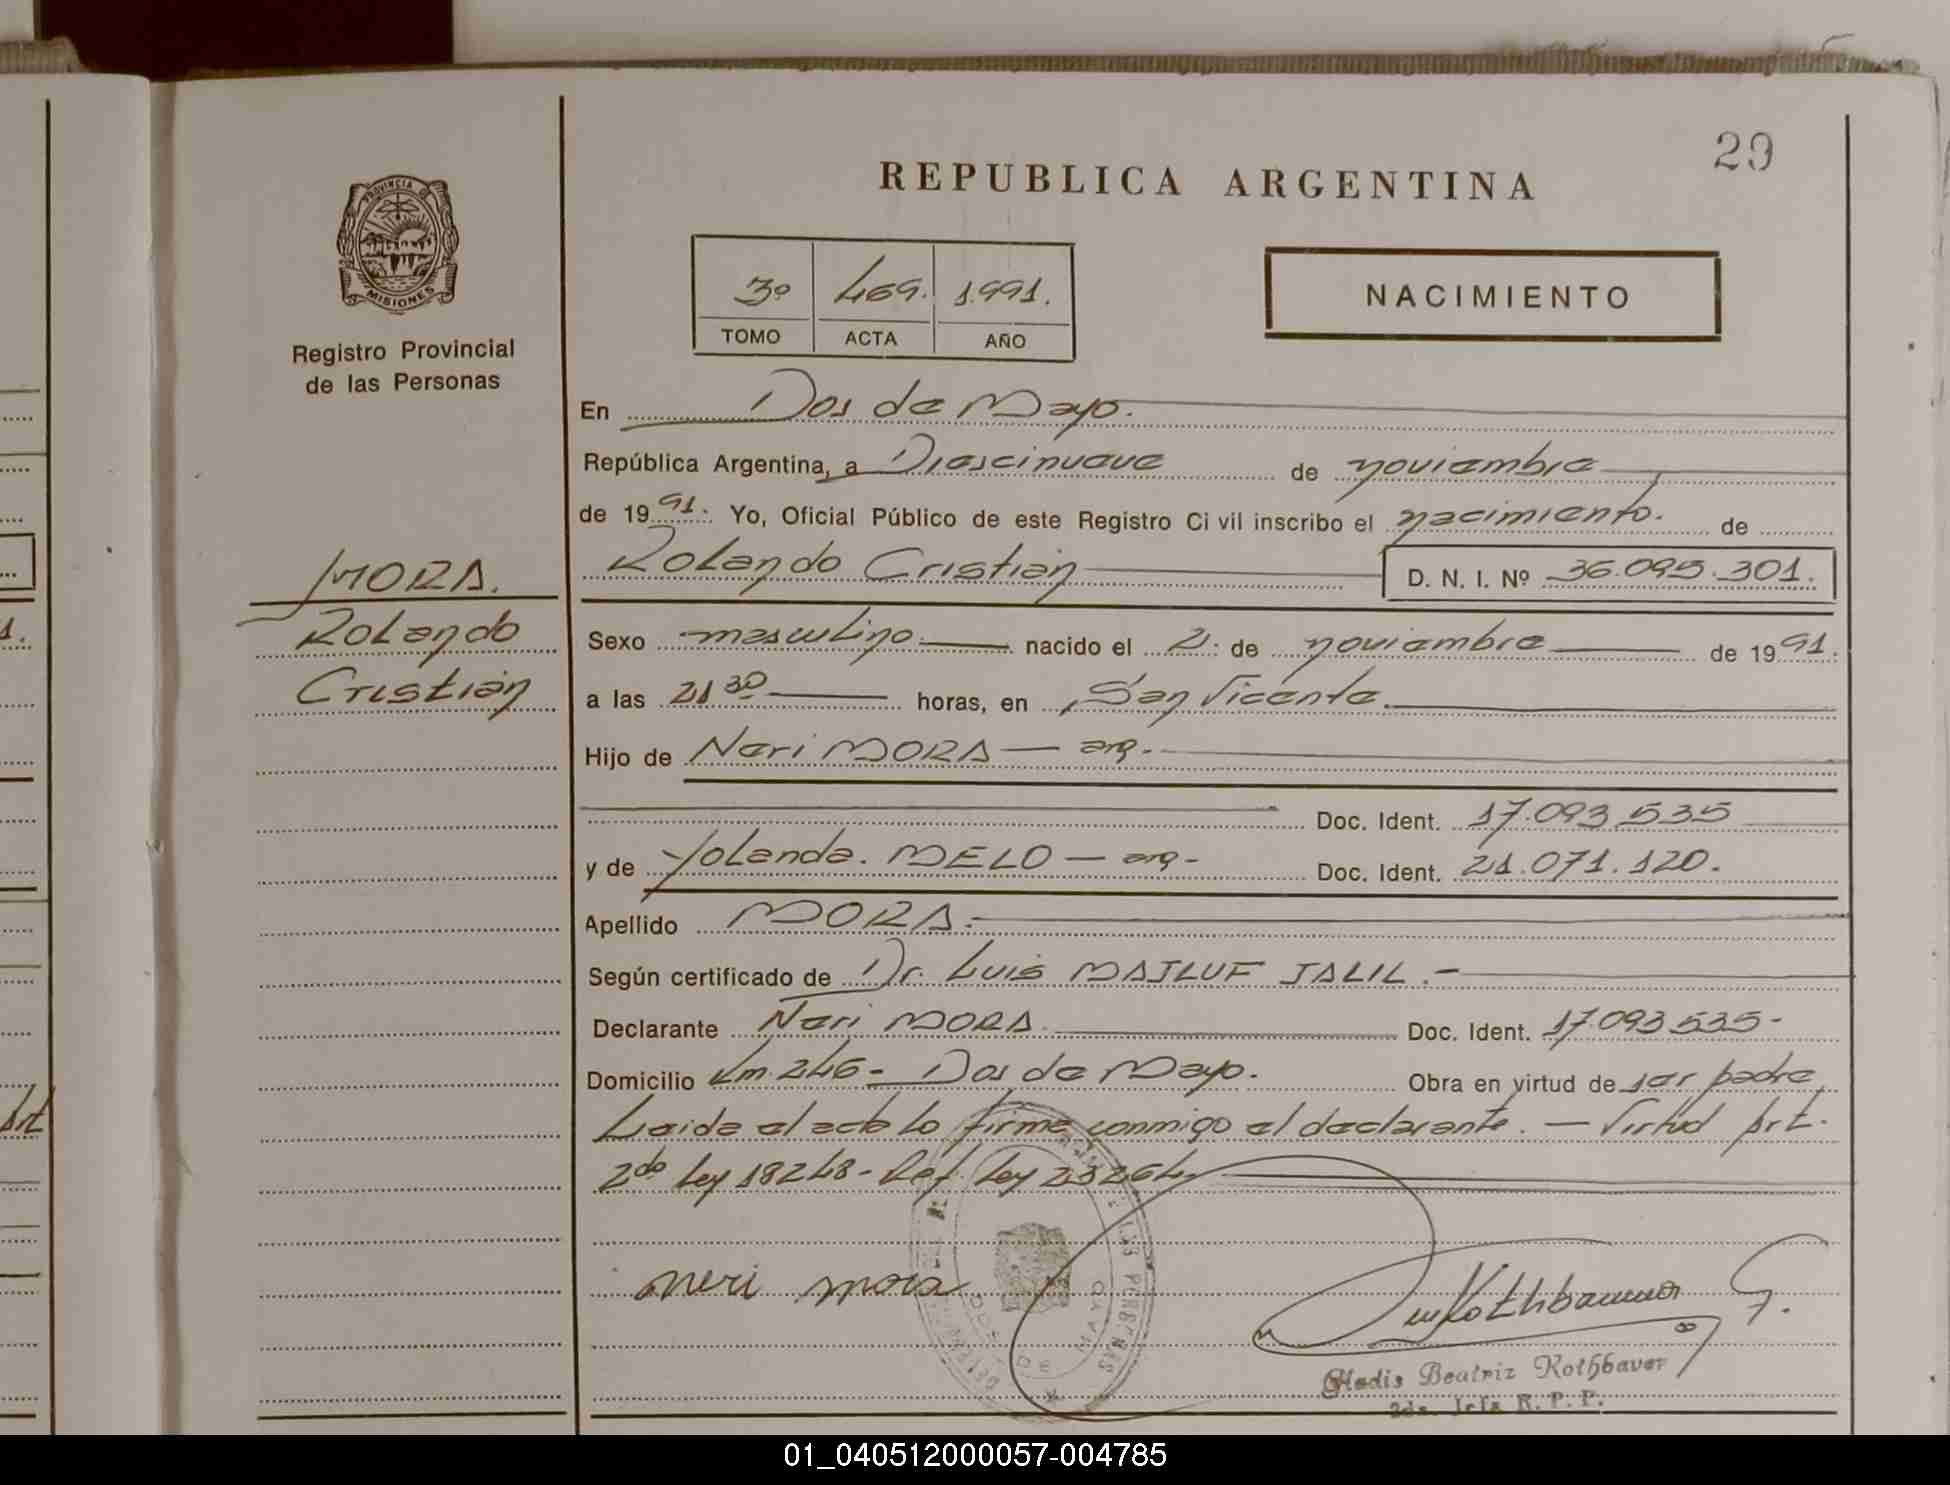 29
REPUBLICA ARGENTINA
PROVINCIA DE
MISIONES
Registro Provincial
de las Personas
3º 469. 1.991.
TOMO ACTA AÑO
NACIMIENTO
En Dos de Mayo.
República Argentina, a Diescinueve de noviembre
de 1991. Yo, Oficial Público de este Registro Civil inscribo el nacimiento. de
Rolando Cristián D. N. I. Nº 36.095.301.
MORA.
Rolando
Cristián
Sexo masculino. nacido el 2. de noviembre de 1991.
a las 21 30 horas, en San Vicente.
Hijo de Neri MORA — arg.
Doc. Ident. 17.093.535
y de Yolanda. MELO — arg- Doc. Ident. 21.071.120.
Apellido MORA.
Según certificado de Dr. Luis MAJLUF JALIL.-
Declarante Neri MORA Doc. Ident. 17.093.535-
Domicilio Km. 246- Dos de Mayo. Obra en virtud de ser padre
Leida el acta lo firma conmigo el declarante. — Virtud Art.
2do Ley 18248- Ref. Ley 23264
neri mora
Rothbauer G.
DE LAS PERSONAS
DOS DE MAYO
Gladis Beatriz Rothbaver
2da. Jefa R. P. P.
01_040512000057-004785